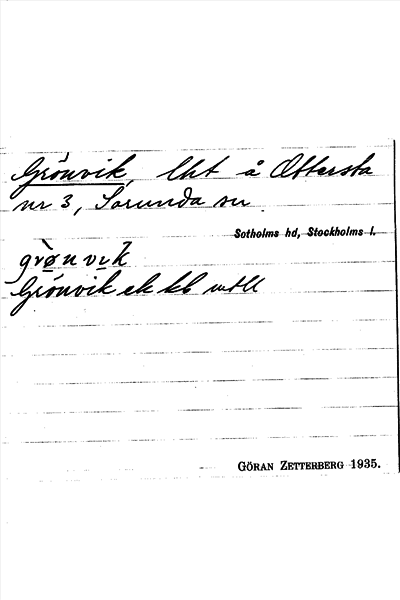 Grönvik, lht å Ottersta
nr 3, Sorunda sn
Sotholms hd, Stockholms l.
grønvik
Grönvik ek kb
GÖRAN ZETTERBERG 1935.